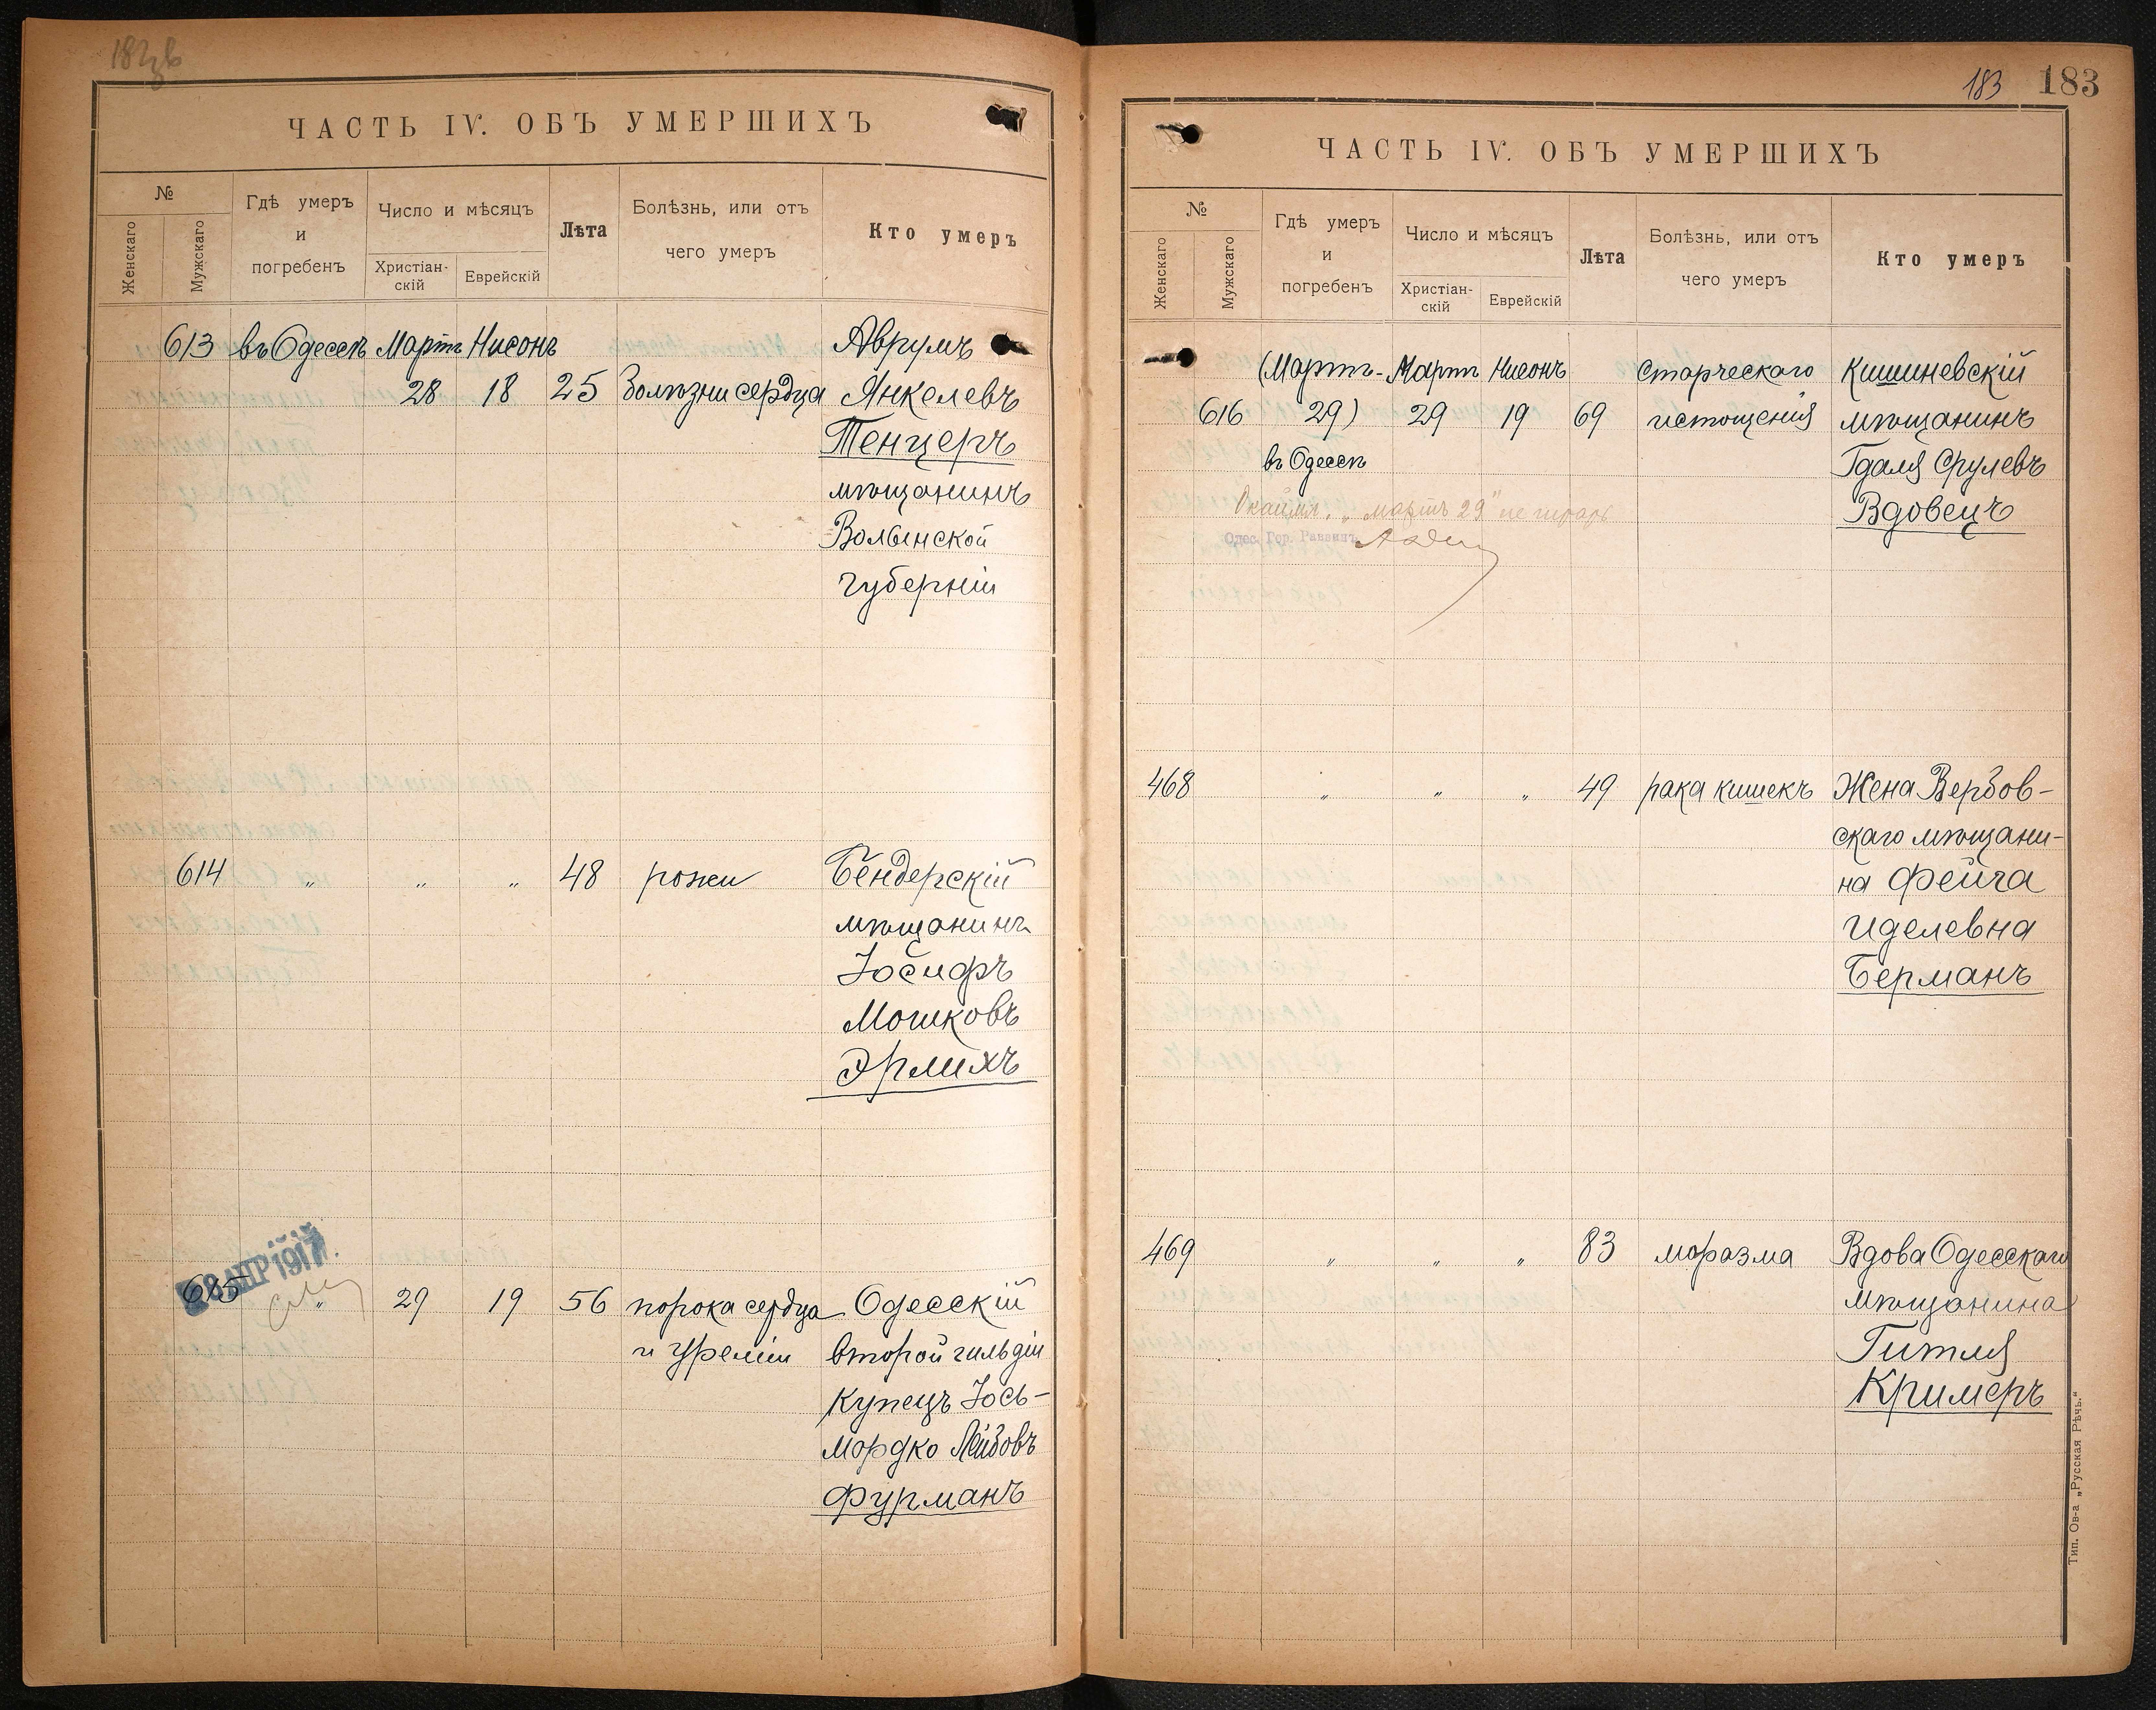 ЧАСТЬ IV. ОБЪ УМЕРШИХЪ
№
Женскаго
Мужскаго
Гдѣ умеръ
и
погребенъ
Число и мѣсяцъ
Христіан-
скій
Еврейскій
Лѣта
Болѣзнь, или отъ
чего умеръ
Кто умеръ
613 въ Одессѣ Мартъ Нисонъ Аврумъ
28 18 25 Болѣзни сердца Янкелевъ
Тенцеръ
мѣщанинъ
Волынской
губерніи
614 " " " 48 рожи Бендерскій
мѣщанинъ
Іосифъ
Мошковъ
Эрлихъ
28 АПР 1917
615 " 29 19 56 порока сердца Одесскій
и уреміи второй гильдіи
купецъ Іось-
Мордко Лейбовъ
Фурманъ
183 183
ЧАСТЬ IV. ОБЪ УМЕРШИХЪ
№
Женскаго
Мужскаго
Гдѣ умеръ
и
погребенъ
Число и мѣсяцъ
Христіан-
скій
Еврейскій
Лѣта
Болѣзнь, или отъ
чего умеръ
Кто умеръ
(Мартъ- Мартъ Нисонъ старческаго Кишиневскій
616 29) 29 19 69 истощенія мѣщанинъ
въ Одессѣ Гдаля Срулевъ
Вдовецъ
"мартъ 29" не
Одес. Гор. Раввинъ
468 " " " 49 рака кишекъ Жена Вербов-
скаго мѣщани-
на Фейга
Иделевна
Берманъ
469 " " " 83 моразма Вдова Одесскаго
мѣщанина
Гитля
Кримеръ
Тип. Ов-а „Русская Рѣчь."